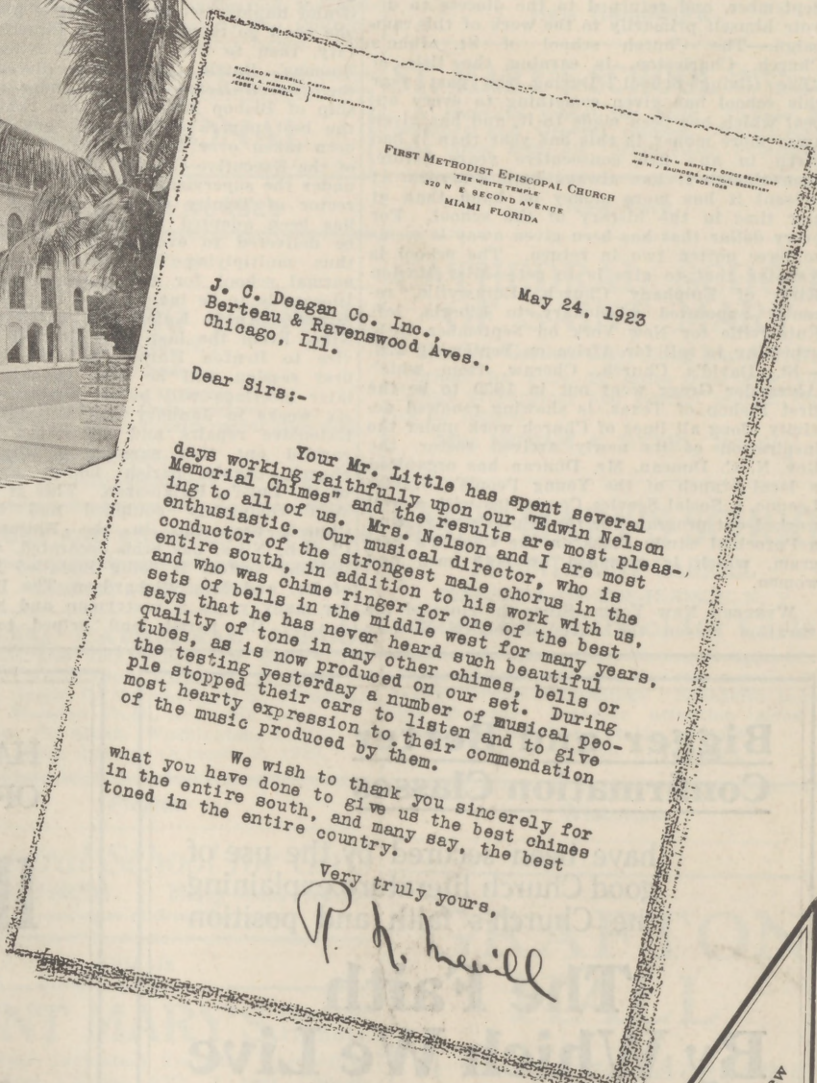 RICHARD N. MERRILL PASTOR
FRANK A. HAMILTON
JESSE L. MURRELL
ASSOCIATE PASTORS
FIRST METHODIST EPISCOPAL CHURCH
"THE WHITE TEMPLE"
320 N E SECOND AVENUE
MIAMI FLORIDA
MISS HELEN M BARTLETT OFFICE SECRETARY
WM H J SAUNDERS FINANCIAL SECRETARY
P O BOX 1048
May 24, 1923
J. C. Deagan Co. Inc.,
Berteau & Ravenswood Aves.,
Chicago, Ill.
Dear Sirs:-
Your Mr. Little has spent several
days working faithfully upon our "Edwin Nelson
Memorial Chimes" and the results are most pleas-
ing to all of us. Mrs. Nelson and I are most
enthusiastic. Our musical director, who is
conductor of the strongest male chorus in the
entire south, in addition to his work with us,
and who was chime ringer for one of the best
sets of bells in the middle west for many years,
says that he has never heard such beautiful
quality of tone in any other chimes, bells or
tubes, as is now produced on our set. During
the testing yesterday a number of musical peo-
ple stopped their cars to listen and to give
most hearty expression to their commendation
of the music produced by them.
We wish to thank you sincerely for
what you have done to give us the best chimes
in the entire south, and many say, the best
toned in the entire country.
Very truly yours,
R. N. Merrill